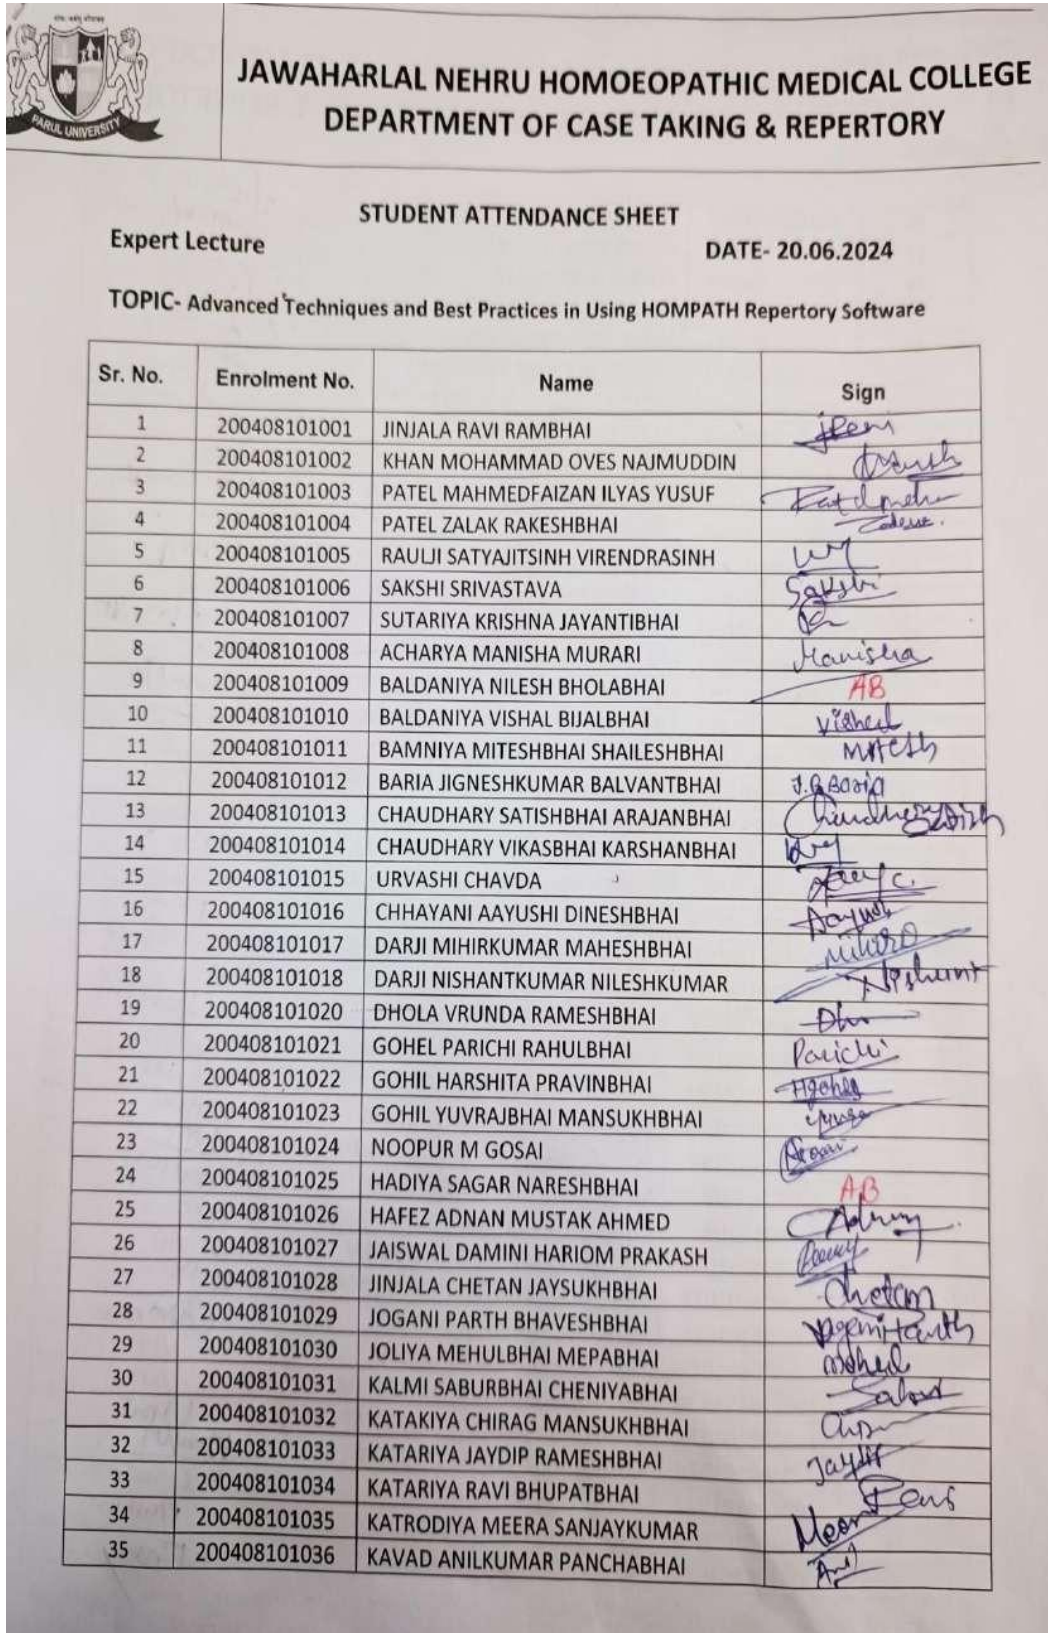 PARUL UNIVERSITY
JAWAHARLAL NEHRU HOMOEOPATHIC MEDICAL COLLEGE
DEPARTMENT OF CASE TAKING & REPERTORY
STUDENT ATTENDANCE SHEET
Expert Lecture DATE- 20.06.2024
TOPIC- Advanced Techniques and Best Practices in Using HOMPATH Repertory Software
Sr. No. Enrolment No. Name Sign
1 200408101001 JINJALA RAVI RAMBHAI
2 200408101002 KHAN MOHAMMAD OVES NAJMUDDIN
3 200408101003 PATEL MAHMEDFAIZAN ILYAS YUSUF
4 200408101004 PATEL ZALAK RAKESHBHAI
5 200408101005 RAULJI SATYAJITSINH VIRENDRASINH
6 200408101006 SAKSHI SRIVASTAVA Sakshi
7 200408101007 SUTARIYA KRISHNA JAYANTIBHAI
8 200408101008 ACHARYA MANISHA MURARI Manisha
9 200408101009 BALDANIYA NILESH BHOLABHAI AB
10 200408101010 BALDANIYA VISHAL BIJALBHAI Vishal
11 200408101011 BAMNIYA MITESHBHAI SHAILESHBHAI Mitesh
12 200408101012 BARIA JIGNESHKUMAR BALVANTBHAI J.B Baria
13 200408101013 CHAUDHARY SATISHBHAI ARAJANBHAI
14 200408101014 CHAUDHARY VIKASBHAI KARSHANBHAI
15 200408101015 URVASHI CHAVDA
16 200408101016 CHHAYANI AAYUSHI DINESHBHAI
17 200408101017 DARJI MIHIRKUMAR MAHESHBHAI
18 200408101018 DARJI NISHANTKUMAR NILESHKUMAR Nishant
19 200408101020 DHOLA VRUNDA RAMESHBHAI
20 200408101021 GOHEL PARICHI RAHULBHAI Parichi
21 200408101022 GOHIL HARSHITA PRAVINBHAI
22 200408101023 GOHIL YUVRAJBHAI MANSUKHBHAI
23 200408101024 NOOPUR M GOSAI
24 200408101025 HADIYA SAGAR NARESHBHAI AB
25 200408101026 HAFEZ ADNAN MUSTAK AHMED
26 200408101027 JAISWAL DAMINI HARIOM PRAKASH
27 200408101028 JINJALA CHETAN JAYSUKHBHAI Chetan
28 200408101029 JOGANI PARTH BHAVESHBHAI
29 200408101030 JOLIYA MEHULBHAI MEPABHAI
30 200408101031 KALMI SABURBHAI CHENIYABHAI
31 200408101032 KATAKIYA CHIRAG MANSUKHBHAI
32 200408101033 KATARIYA JAYDIP RAMESHBHAI
33 200408101034 KATARIYA RAVI BHUPATBHAI
34 200408101035 KATRODIYA MEERA SANJAYKUMAR
35 200408101036 KAVAD ANILKUMAR PANCHABHAI